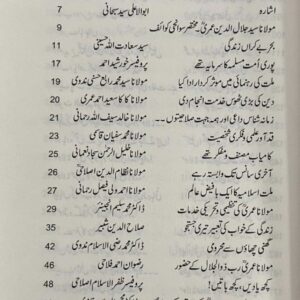 اشارہ ابوالاعلیٰ سید سبحانی 7
مولانا سید جلال الدین عمریؒ۔ مختصر سوانحی کوائف 9
بحر بے کراں زندگی سید سعادت اللہ حسینی 11
پوری امت مسلمہ کا سرمایہ تھے پروفیسر خورشید احمد 17
ملت کی رہنمائی میں موثر کردار ادا کیا مولانا سید محمد رابع حسنی ندوی 19
دین کی بڑی ٹھوس خدمت انجام دی مولانا کاکا سعید احمد عمری 20
زمانہ شناس داعی اور ہمہ جہت صلاحیتوں... مولانا خالد سیف اللہ رحمانی 21
قد آور علمی و فکری شخصیت مولانا محمد سفیان قاسمی 23
کامیاب مصنف و مفکر تھے مولانا خلیل الرحمٰن سجاد نعمانی 25
آخری سانس تک وابستہ رہے مولانا نظام الدین اصلاحی 26
ملت اسلامیہ کا ایک بافیض عالم مولانا احمد ولی فیصل رحمانی 27
مولانا عمریؒ کی تنظیمی و تحریکی خدمات ڈاکٹر محمد سلیم انجینئر 29
زندگی کے خواب کی تعبیر تیری جستجو صلاح الدین شبیر 35
گھنی چھاؤں سے محرومی ڈاکٹر محمد رضی الاسلام ندوی 42
مولانا عمریؒ رب ذوالجلال کے حضور رضوان احمد فلاحی 46
کچھ یادیں، کچھ باتیں! پروفیسر ظفر الاسلام اصلاحی 48